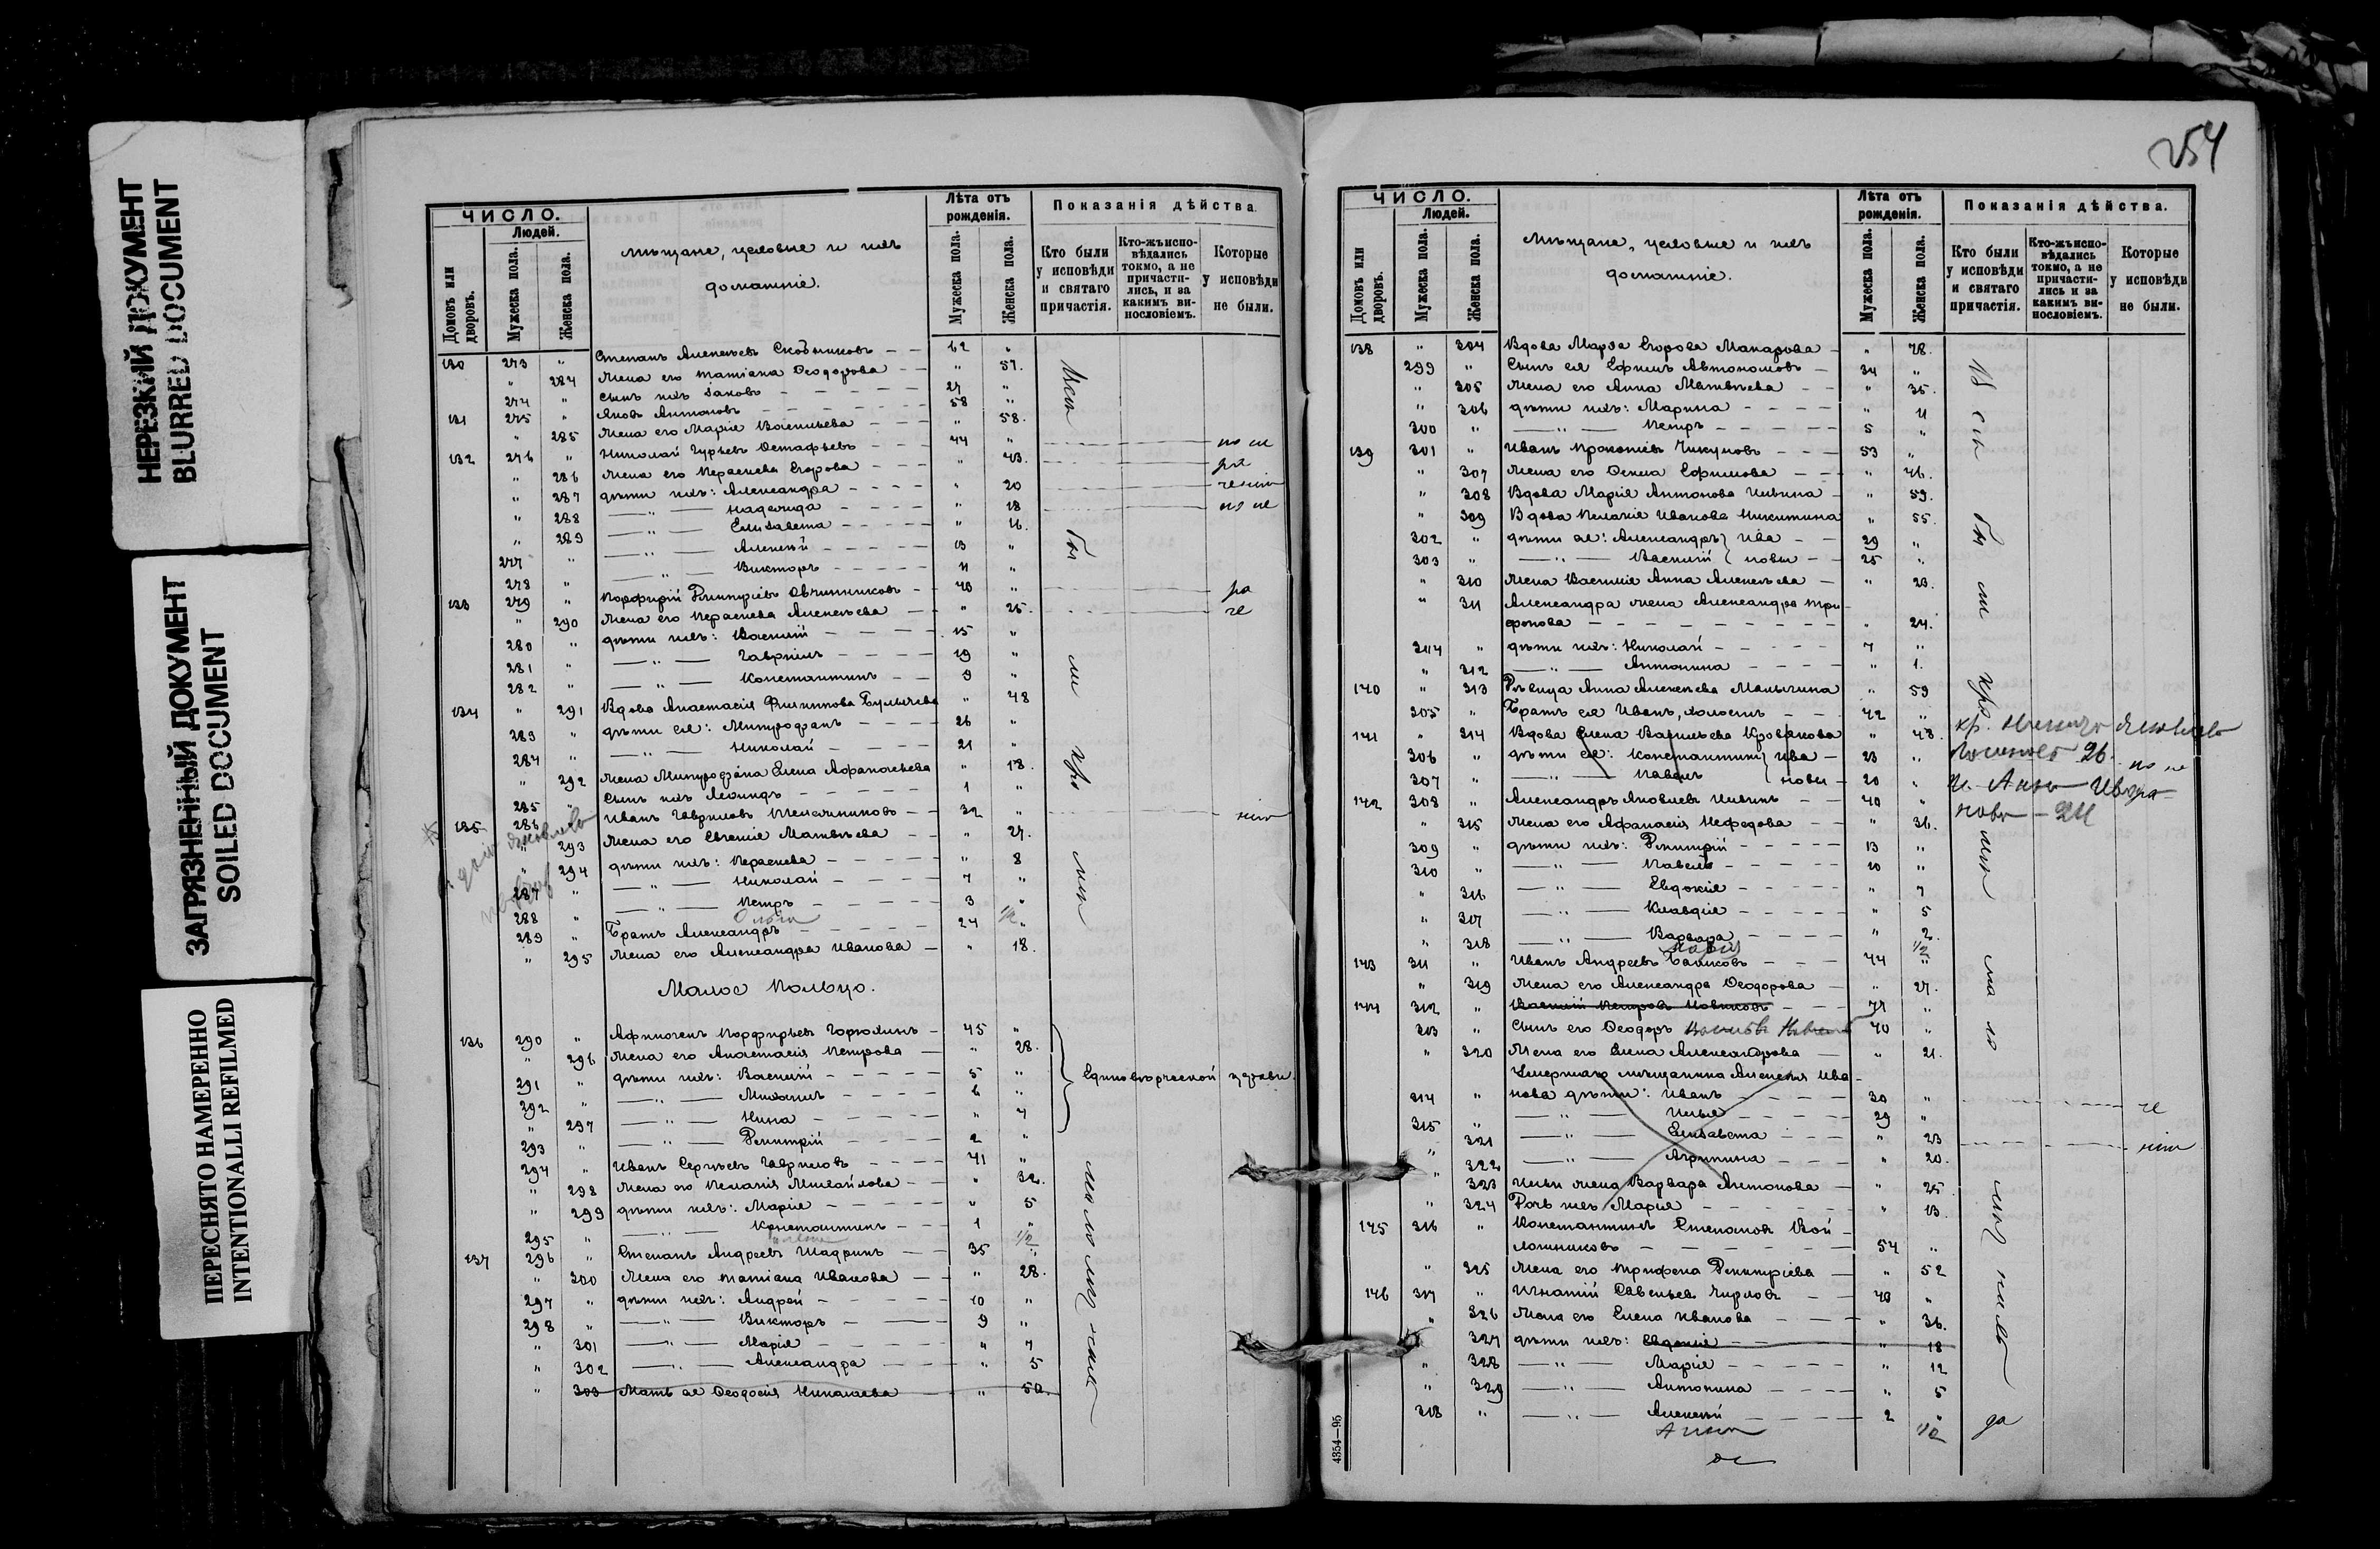 НЕРЕЗКИЙ ДОКУМЕНТ
BLURRED DOCUMENT
ЗАГРЯЗНЕННЫЙ ДОКУМЕНТ
SOILED DOCUMENT
ПЕРЕСНЯТО НАМЕРЕННО
INTENTIONALLI REFILMED
ЧИСЛО.
Людей.
Домовъ или дворовъ.
Мужеска пола.
Женска пола.
Мѣщане, цеховые и ихъ
домашніе.
Лѣта отъ рожденія.
Мужеска пола.
Женска пола.
Показанія дѣйства.
Кто были у исповѣди и святаго причастія.
Кто-жъ исповѣдались токмо, а не причастились, и за какимъ винословіемъ.
Которые у исповѣди не были.
130 273 " Степанъ Алексѣевъ Скобниковъ – – 62 "
" 284 Жена его Татіана Ѳеодорова – – " 57.
274 " Сынъ ихъ Іаковъ – – – 27 "
131 275 " Яковъ Антоновъ – – – 58 "
" 285 Жена его Марія Васильева – – – " 58.
132 276 " Николай Гурьевъ Остафьевъ – – – 44 "
" 286 Жена его Параскева Егорова – – – " 43.
" 287 дѣти ихъ: Александра – – – – " 20
" 288 — " — Надежда – – – – " 18
" 289 — " — Елисавета – – – – " 16.
277 " — " — Алексѣй – – – – 13 "
278 " — " — Викторъ – – – – 11 "
133 279 " Порфирій Димитріевъ Овчинниковъ – 40 "
" 290 Жена его Параскева Алексѣева – – " 25.
280 " дѣти ихъ: Василій – – – – 15 "
281 " — " — Гавріилъ – – – – 19 "
282 " — " — Константинъ – – 9 "
134 " 291 Вдова Анастасія Филиппова Булычева " 48
283 " дѣти ея: Митрофанъ – – – – 26 "
284 " — " — Николай – – – – 21 "
" 292 Жена Митрофана Елена Афанасьева " 18.
285 " Сынъ ихъ Леонидъ – – – – 1 "
135 286 " Иванъ Гавриловъ – – 32 "
" 293 Жена его Евгенія Матвѣева – – " 27.
" 294 дѣти ихъ: Параскева – – – – " 8
287 " — " — Николай – – – – 7 "
288 " — " — Петръ – – – – 3 "
Ольга 1/2
289 " Братъ Александръ – – – – 24 "
" 295 Жена его Александра Иванова – " 18.
Малое Кольцо.
136 290 " Афиногенъ Порфирьевъ Горюхинъ – 45 "
" 296 Жена его Анастасія Петрова – " 28.
291 " дѣти ихъ: Василій – – – – 5 "
Единовѣрческой церкви.
292 " — " — Михаилъ – – – – 6 "
" 297 — " — Нина – – – – " 4
293 " — " — Димитрій – – – – 2 "
294 " Иванъ Сергѣевъ Гавриловъ – – – 41 "
" 298 Жена его Пелагія Михайлова – – " 32.
" 299 дѣти ихъ: Марія – – – – " 5
295 " — " — Константинъ – – – 1 "
1/2
137 296 " Степанъ Андреевъ Шадринъ – – 35 "
" 300 Жена его Татіана Иванова – – " 28.
297 " дѣти ихъ: Андрей – – – – 10 "
298 " — " — Викторъ – – – 9 "
" 301 — " — Марія – – – – " 7
" 302 — " — Александра – – – " 5
" 303 Мать ея Ѳеодосія Николаева – " 50.
254
ЧИСЛО.
Людей.
Домовъ или дворовъ.
Мужеска пола.
Женска пола.
Мѣщане, цеховые и ихъ
домашніе.
Лѣта отъ рожденія.
Мужеска пола.
Женска пола.
Показанія дѣйства.
Кто были у исповѣди и святаго причастія.
Кто-жъ исповѣдались токмо, а не причастились и за какимъ винословіемъ.
Которые у исповѣди не были.
138 " 304 Вдова Марѳа Егорова Макарова – " 78.
299 " Сынъ ея Ефимъ Автономовъ – 34 "
" 305 Жена его Анна Матвѣева – – " 35.
" 306 дѣти ихъ: Марина – – – – " 11
300 " — " — Петръ – – – – 5 "
139 301 " Иванъ Прокопіевъ Чикуновъ – – – 53 "
" 307 Жена его Ѳекла Ефимова – – " 46.
" 308 Вдова Марія Антонова Ильина – " 59.
" 309 Вдова Пелагія Иванова Никитина " 55.
302 " дѣти ея: Александръ} Ива – – 29 "
303 " — " — Василій { новы – – 25 "
" 310 Жена Василія Анна Алексѣева – " 23.
" 311 Александра жена Александра Три-
фонова – – – – – – – " 24.
304 " дѣти ихъ: Николай – – – – 7 "
" 312 — " — Антонина – – – – " 1.
140 " 313 Дѣвица Анна Алексѣева Малыгина " 59
305 " Братъ ея Иванъ, холостъ – – 42 "
141 " 314 Вдова Елена Васильева Кровякова " 43.
306 " дѣти ея: Константинъ} Ива – 23 "
307 " — " — Павелъ { новы – 20 "
142 308 " Александръ Яковлевъ Ильинъ – – 40 "
" 315 Жена его Афанасія Нефедова – – " 36.
309 " дѣти ихъ: Димитрій – – – – 13 "
310 " — " — Павелъ – – – – 10 "
" 316 — " — Евдокія – – – – " 7
" 317 — " — Клавдія – – – – " 5
" 318 — " — Варвара – – – – " 2.
Марія 1/2
143 311 " Иванъ Андреевъ Балисовъ – – – 44 "
" 319 Жена его Александра Ѳеодорова – " 27.
144 312 " Василій Петровъ Новиковъ – – 71 "
313 " Сынъ его Ѳеодоръ 40 "
" 320 Жена его Елена Александрова – " 21.
Умершаго мѣщанина Алексѣя Ива-
314 " нова дѣти: Иванъ – – – – 30 "
315 " — " — Илья – – – – 29 "
" 321 — " — Елисавета – – – " 23
" 322 — " — Агрипина – – – " 20.
" 323 Ильи жена Варвара Антонова – " 25.
" 324 Дочь ихъ Марія – – – – " 13.
145 316 " Константинъ Степановъ Вой-
лошниковъ – – – – – 54 "
" 325 Жена его Трифена Димитріева – " 52
146 317 " Игнатій Савельевъ Чирловъ – – 43 "
" 326 Жена его Елена Иванова – – – " 36.
" 327 дѣти ихъ: Евдокія – – – " 18
" 328 — " — Марія – – – – " 12
" 329 — " — Антонина – – – – " 5
318 " — " — Алексѣй – – – – 2 "
Анна 1/2
4354—95